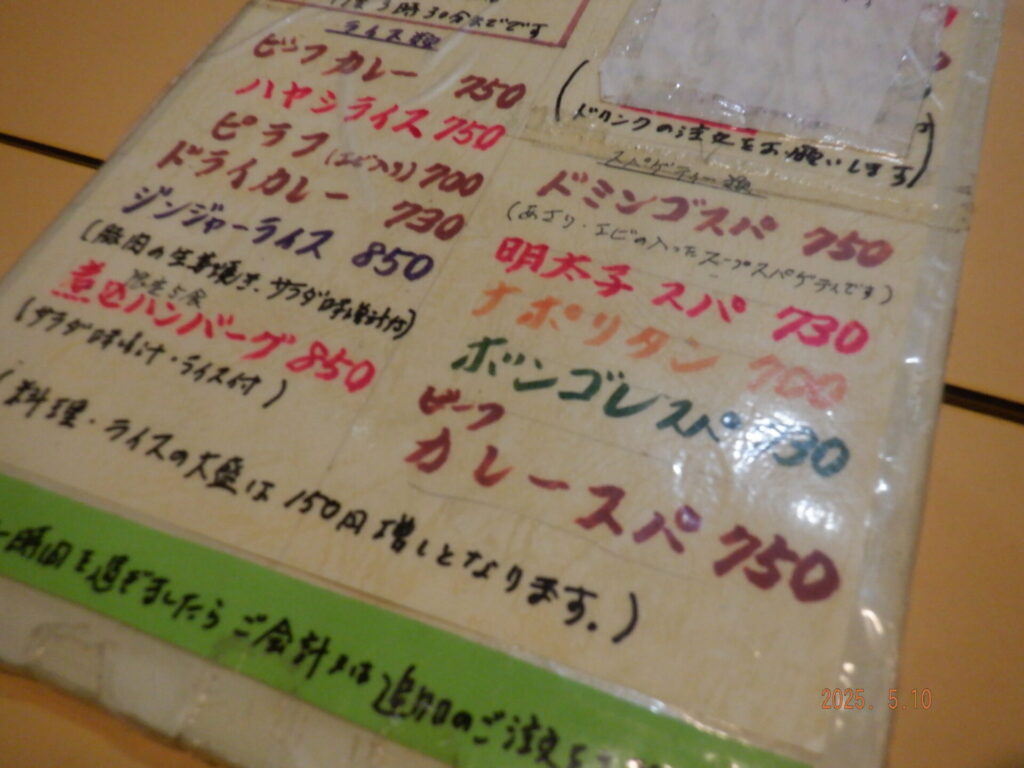 3時30分までです
ライス類
ビーフカレー 750
ハヤシライス 750
ピラフ(エビ入り)700
ドライカレー 730
ジンジャーライス 850
(豚肉の生姜焼き、サラダ味噌汁付)
煮込ハンバーグ 850
(サラダ味噌汁・ライス付)
(料理・ライスの大盛は150円増しとなります。)
(ドリンクの注文をお願いします)
スパゲティー類
ドミンゴスパ 750
(あさり・エビの入ったスープスパゲティです)
明太子スパ 730
ナポリタン 700
ボンゴレスパ 730
ビーフ
カレースパ 750
時間を過ぎましたらご会計又は追加のご注文を
2025. 5.10